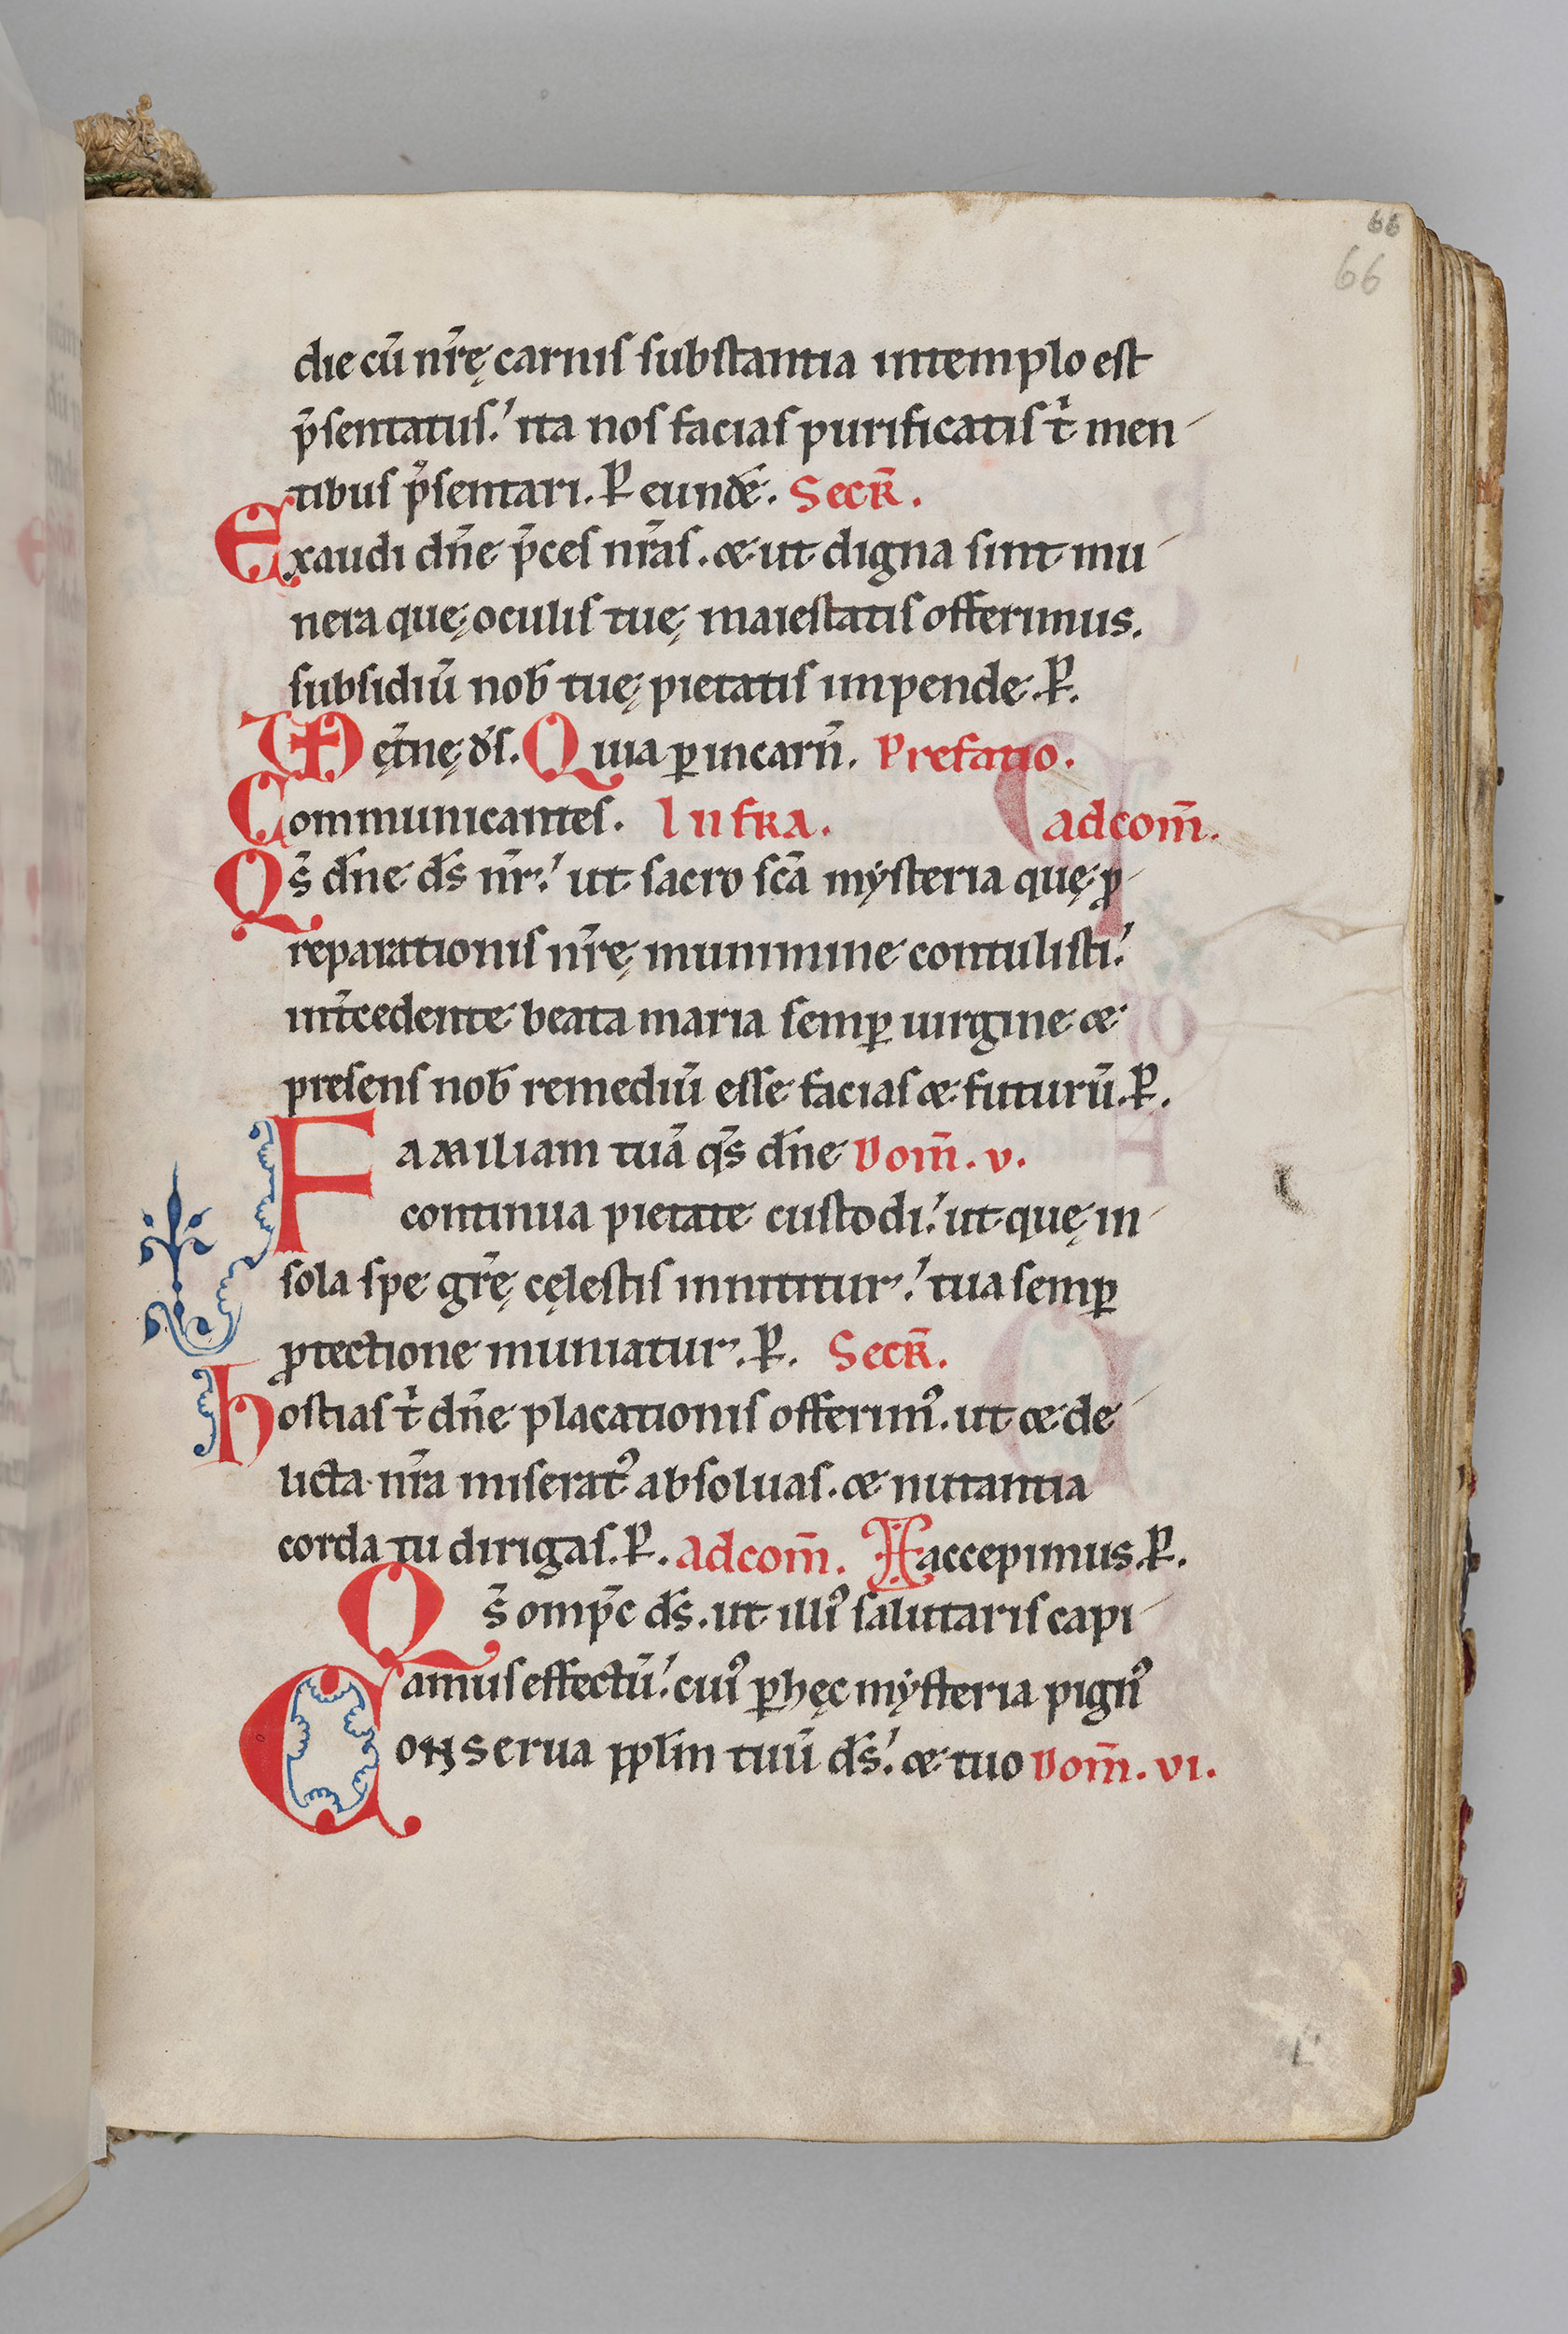 66
66
die cū nr̄ę carnis substantia intemplo est
p̄sentatus. ita nos facias purificatis t̉ men
tibus p̄sentari. P eundē. Secr̄.
Exaudi dn̄e p̄ces nr̄as. & ut digna sint mu
nera quę oculis tuę maiestatis offerimus.
subsidiū nob̄ tuę pietatis impende. P.
ęt̄nę ds̄. Quia ꝑ incarn̄. Prefatio.
Communicantes. Infra. adcom̄.
Qs̄ dn̄e ds̄ nr̄. ut sacro sc̄a mẏsteria quę ꝓ
reparationis nr̄ę munimine contulisti.
int̄cedente beata maria semꝑ uirgine &
presens nob̄ remediū esse facias & futurū. P.
Familiam tuā qs̄ dn̄e Dom̄. v.
continua pietate custodi. ut quę in
sola spe gr̄ę cęlestis innititur. tua semꝑ
ꝓtectione muniatur. P. Secr̄.
hostias t̉ dn̄e placationis offerim᾿. ut & de
licta nr̄a miserat᾿ absoluas. & nutantia
corda tu dirigas. P. adcom̄. accepimus. P.
Qs̄ omp̄c ds̄. ut illi᾿ salutaris capi
amus effectū. cui᾿ ꝑ hęc mẏsteria pign᾿
Conserua ppl̄m tuū ds̄. & tuo Dom̄. vi.